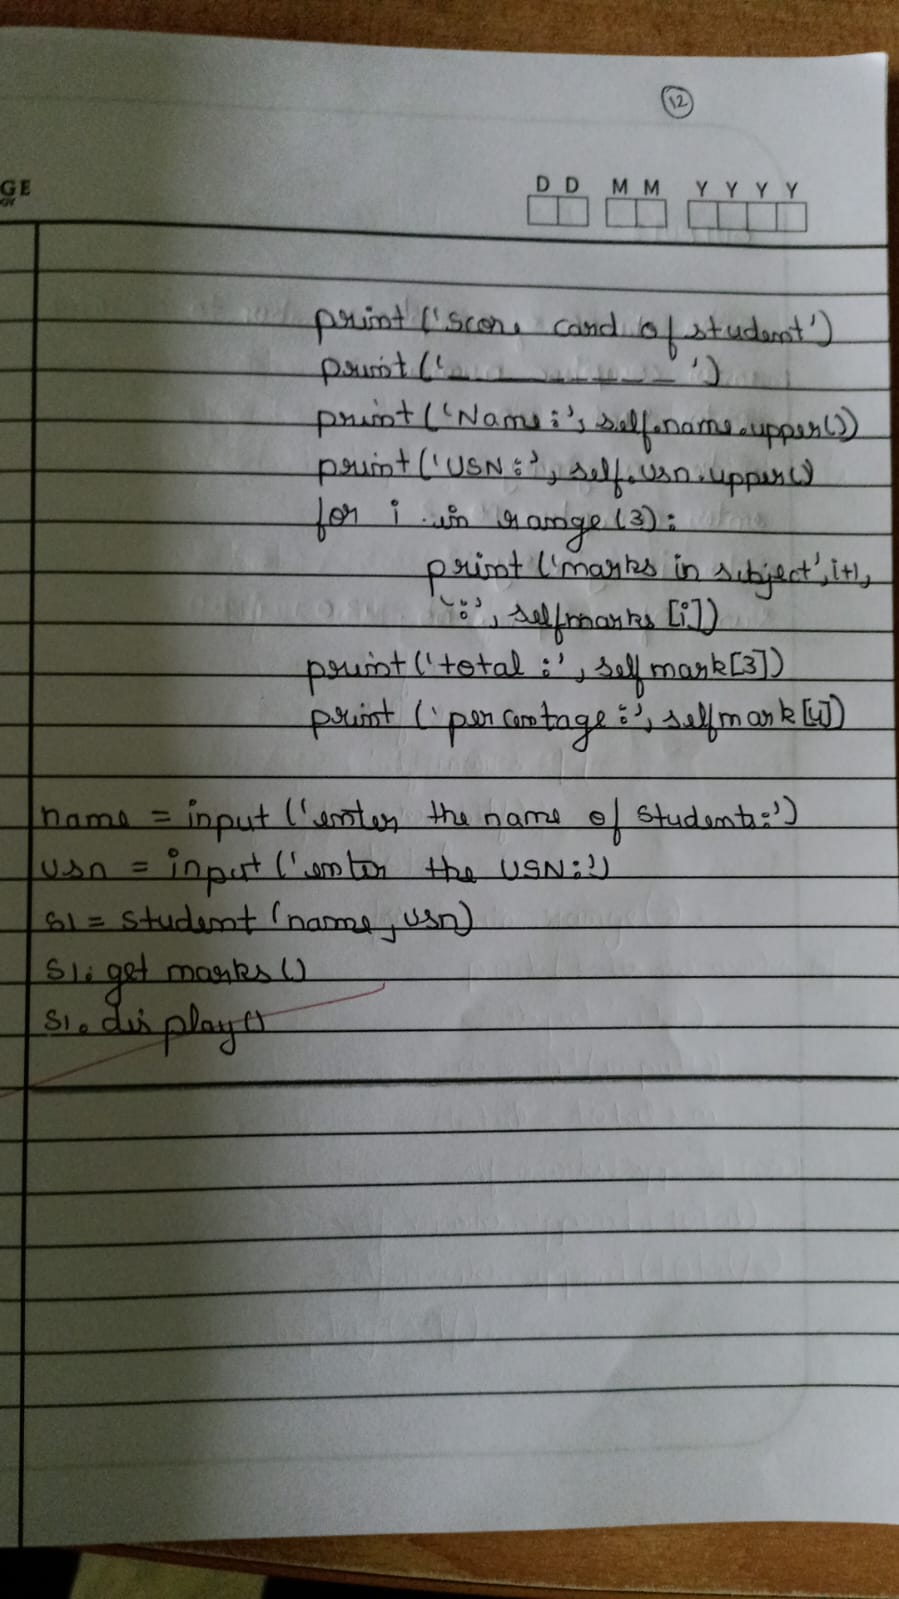 12
GE
D D M M Y Y Y Y
print ('score card of student')
print ('_ _ _ _ _ _ _ _ _')
print ('Name:', self.name.upper())
print ('USN:', self.usn.upper()
for i in range (3):
print ('marks in subject', i+1,
':', selfmarks [i])
print ('total:', self mark[3])
print ('percentage:', selfmark[4])
name = input ('enter the name of students:')
usn = input ('enter the USN:')
S1 = student (name, usn)
S1. get marks ()
S1. display()